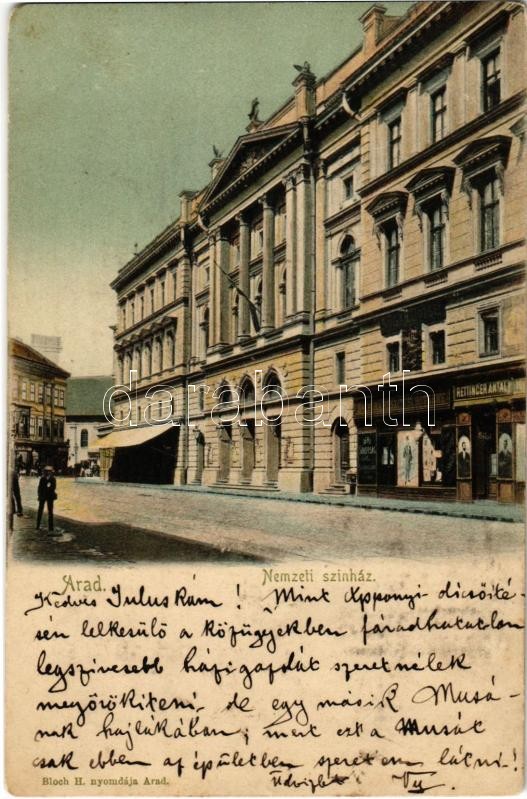 RETTINGER ANTAL
darabanth
Arad. Nemzeti szinház.
Kedves Juluskám! Mint Apponyi-dicsőité-
sén lelkesülő a közügyekben fáradhatatlan
legszivesebb házigazdát szeretnélek
megörökiteni, de egy másik Musá-
nak hajlékában; mert ezt a Musát
csak ebben az épületben szeretem látni!
Bloch H. nyomdája Arad. Üdvözlet